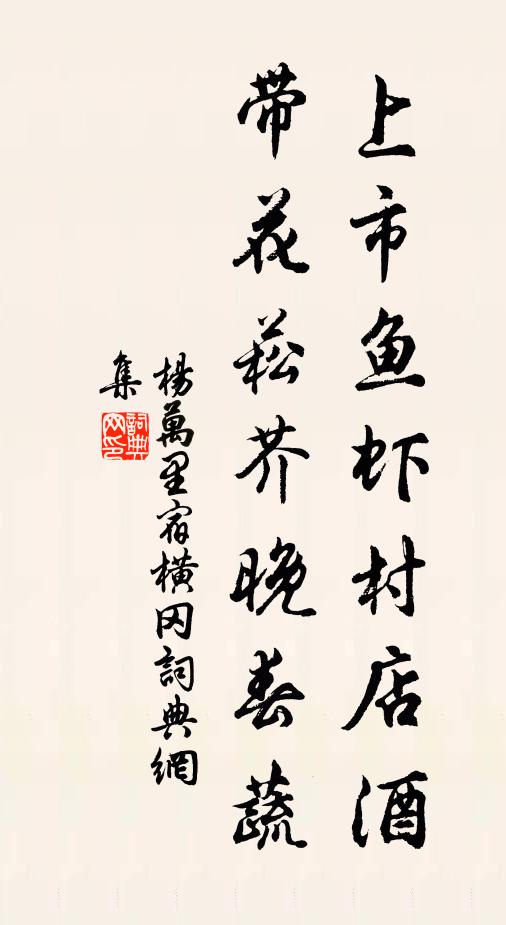 上市鱼虾村店酒
带花菘芥晚春蔬
杨萬里宿横冈詞典網
集
詞典
网印